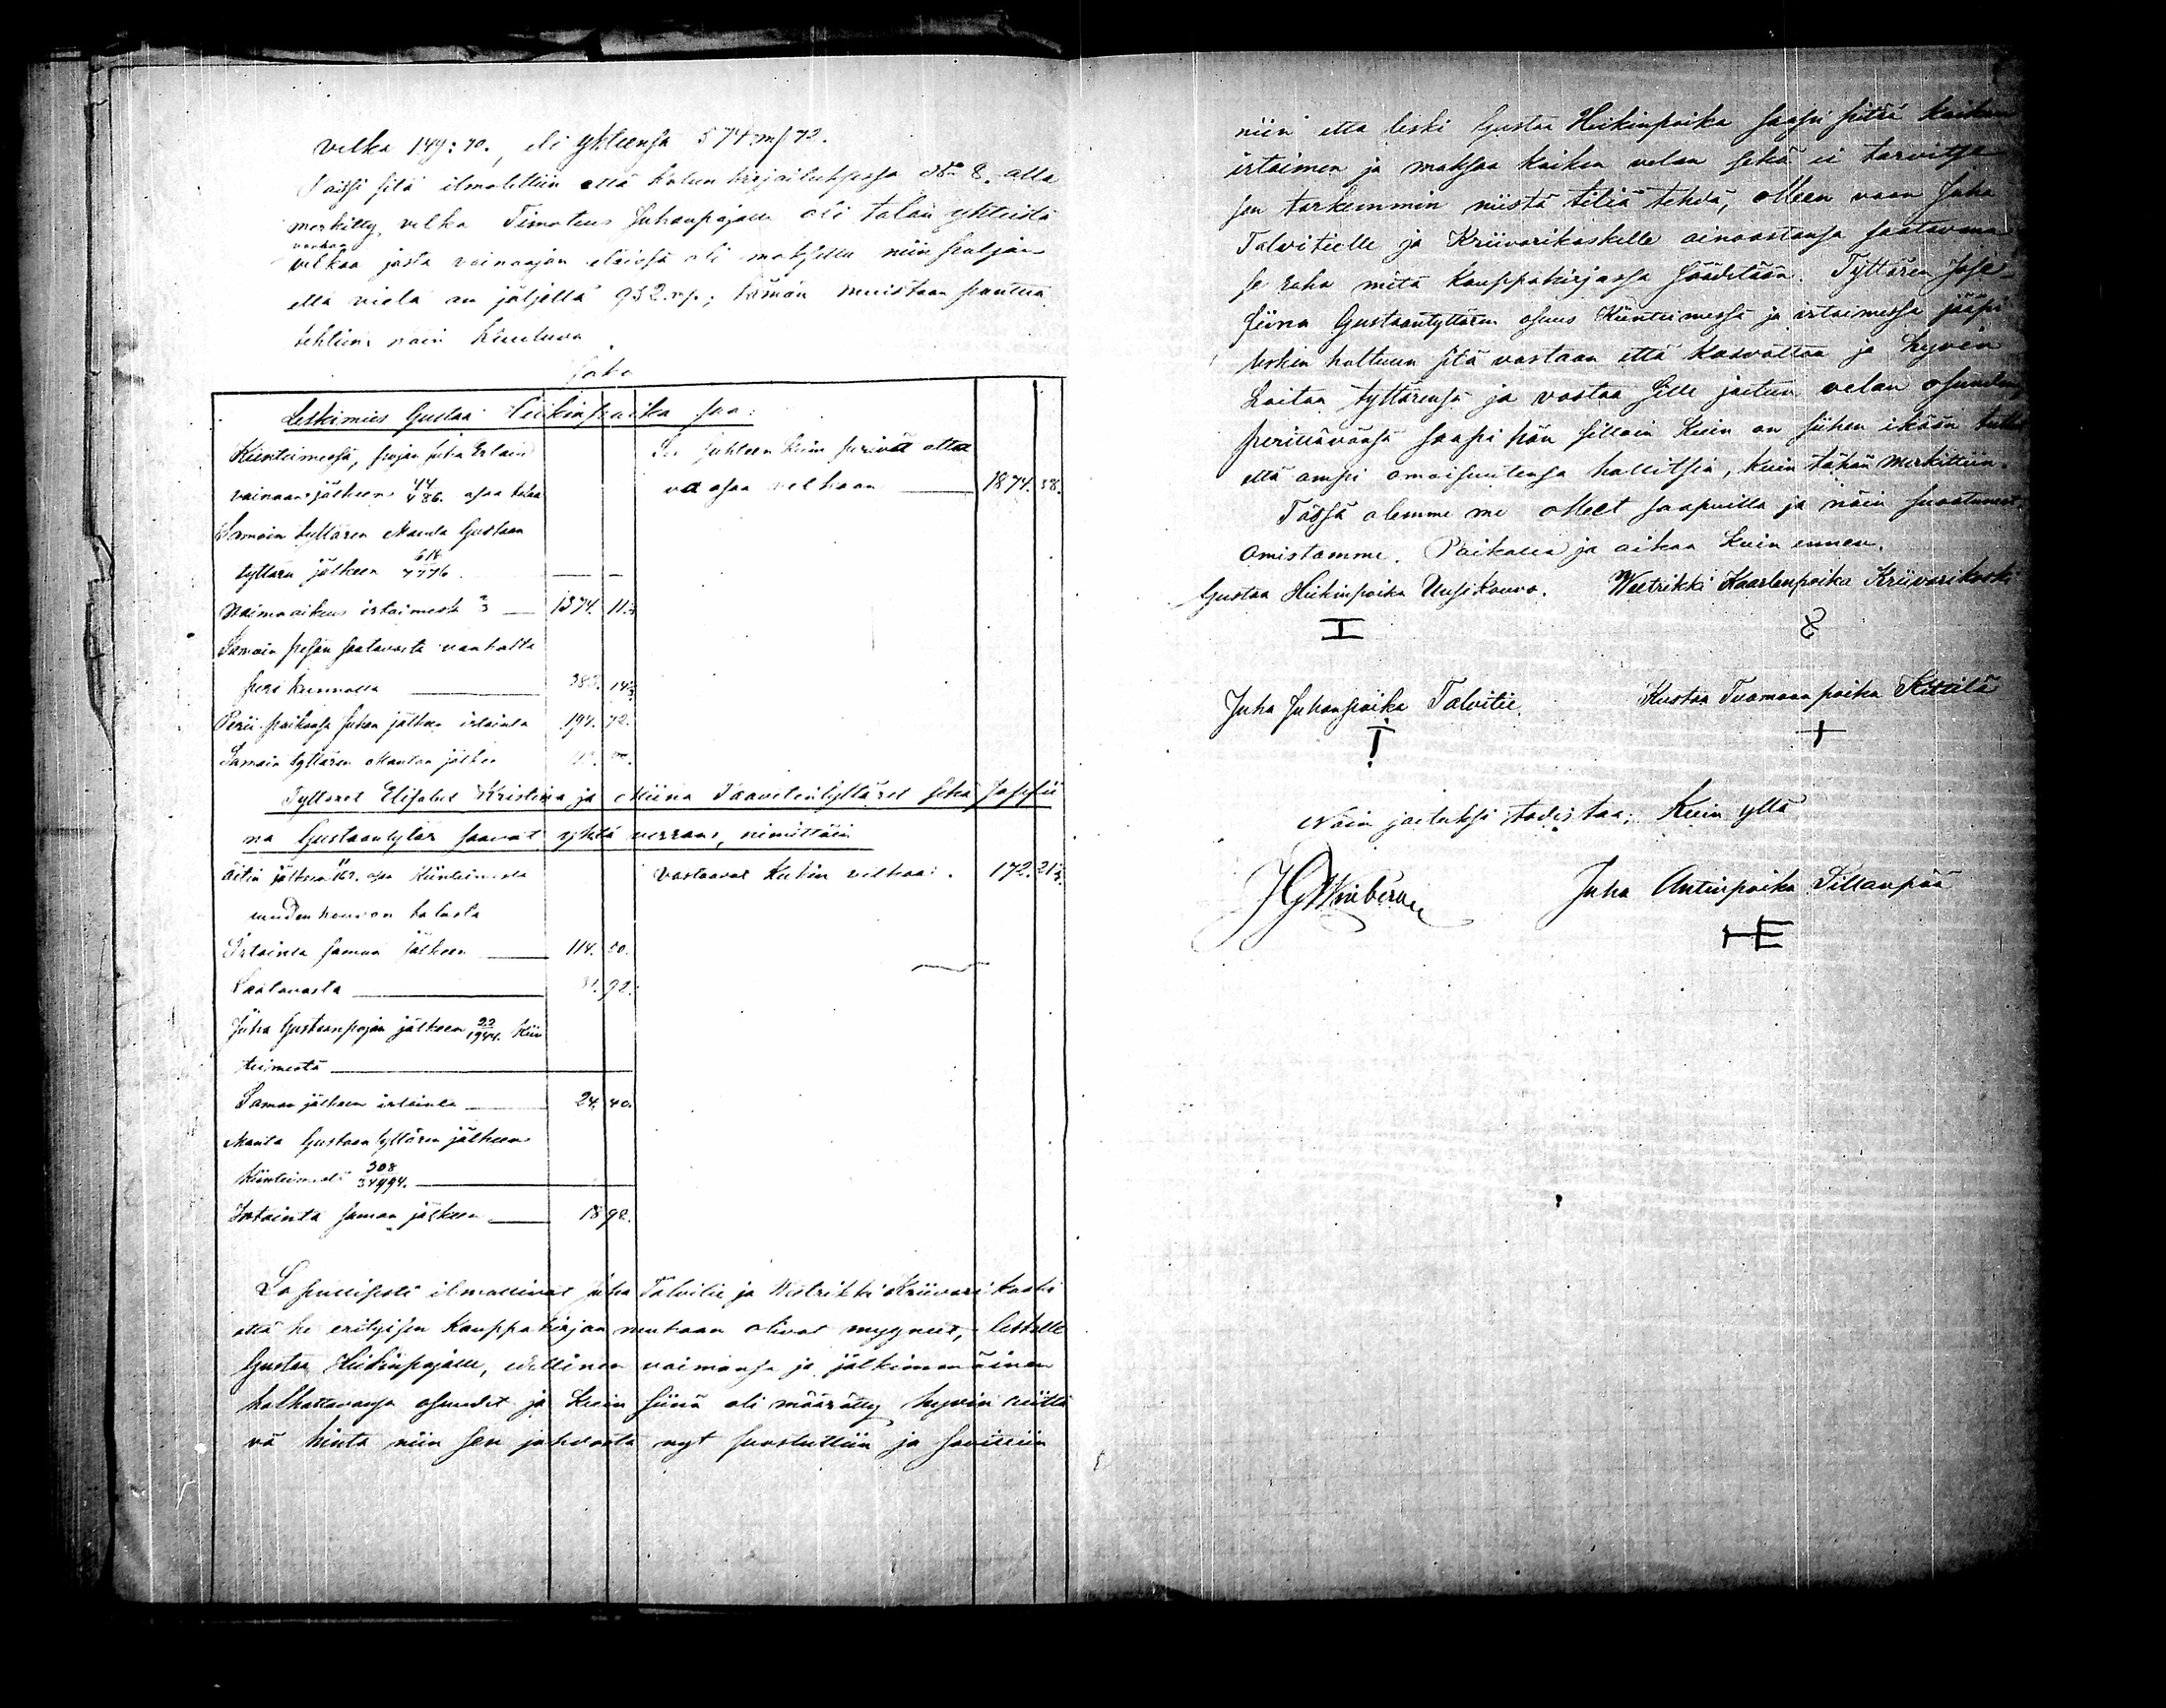 velka 149:70., eli yhteensä 574 mf 72.
Paitsi sitä ilmoitettiin että kalun kirjoituksessa No 8. alla
merkitty velka Timoteus Juhanpojalle oli talon yhteistä
vanhaa
velkaa josta vainaajan eläissä oli maksettu niin paljon
että vielä on jäljellä 932 mf.; tämän muistoon pantua
tehtiin näin kuuluva
Jako
Leskimies Gustaa Heikinpoika saa:
Kiinteimessä, pojan Juha Erland
vainaan jälkeen 44/486 osaa talosta
Samoin tyttären Manta Gustaan
tyttären jälkeen 616/7776.
Naimaoikeus irtaimesta 2/3 — 1374. 11 1/3
Samoin pesän saatavasta vanhalta
perikunnalta — 383. 14 2/3
Perii poikansa Juhan jälkeen irtainta 194. 72.
Samoin tyttären Mantan jälkeen
Se suhteen kuin perivät ottaa
va osaa velkaan — 1874. 58.
Tyttäret Elisabet Kristina ja Miina Taavetintyttäret sekä Josefii
na Gustaantytär saavat yhtä verran, nimittäin
Äitin jälkeen 11/162. osaa kiinteimestä
uuden kouvon talosta
Irtainta saman jälkeen — 114. 50.
Saatavasta — 31. 92.
Juha Gustaanpojan jälkeen 22/1944. Kiin
teimestä —
Saman jälkeen irtainta — 24. 40.
Manta Gustaantyttären jälkeen
Kiinteimestä 308/34994. —
Irtainta saman jälkeen — 18 92.
vastaavat kukin velkaa: . 172. 21 1/2.
Lopullisesti ilmoittivat Juha Talvitie ja Wetrikki Kriivarikoski
että he erityisen kauppakirjan mukaan olivat myyneet, leskelle
Gustaa Heikinpojalle, edellinen vaimonsa ja jälkimmäinen
holhottavansa osuudet ja kuin siinä oli määrätty hyvin riittä
vä hinta niin sen johdosta nyt suostuttiin ja sovittiin
niin että leski Gustaa Heikinpoika saapi pitää kaiken
irtaimen ja maksaa kaiken velan sekä ei tarvitse
sen tarkemmin niistä tiliä tehdä, olleen vaan Juha
Talvitielle ja Kriivarikoskelle ainoastansa saatavana
se raha mitä kauppakirjassa säädetään. Tyttären Jose-
fiina Gustaantyttären osuus Kiinteimessä ja irtaimessa jääpi
leskin haltuun sitä vastaan että kasvattaa ja hyvin
hoitaa tyttärensä ja vastaa sille jaetun velan osuuden,
perittävänsä saapi hän silloin kuin on siihen ikään tullut
että ompi omaisuutensa hallitsia, kuin tähän merkittiin.
Tässä olemme me olleet saapuilla ja näin suostuneet
omistamme. Paikalla ja aikaa kuin ennen.
Gustaa Heikinpoika Uusikouvo. Wetrikki Kaarlenpoika Kriivarikoski
Juha Juhanpoika Talvitie. Kustaa Tuomaanpoika Kittilä
Näin jaetuksi todistaa: Kuin yllä
Juha Antinpoika Sillanpää